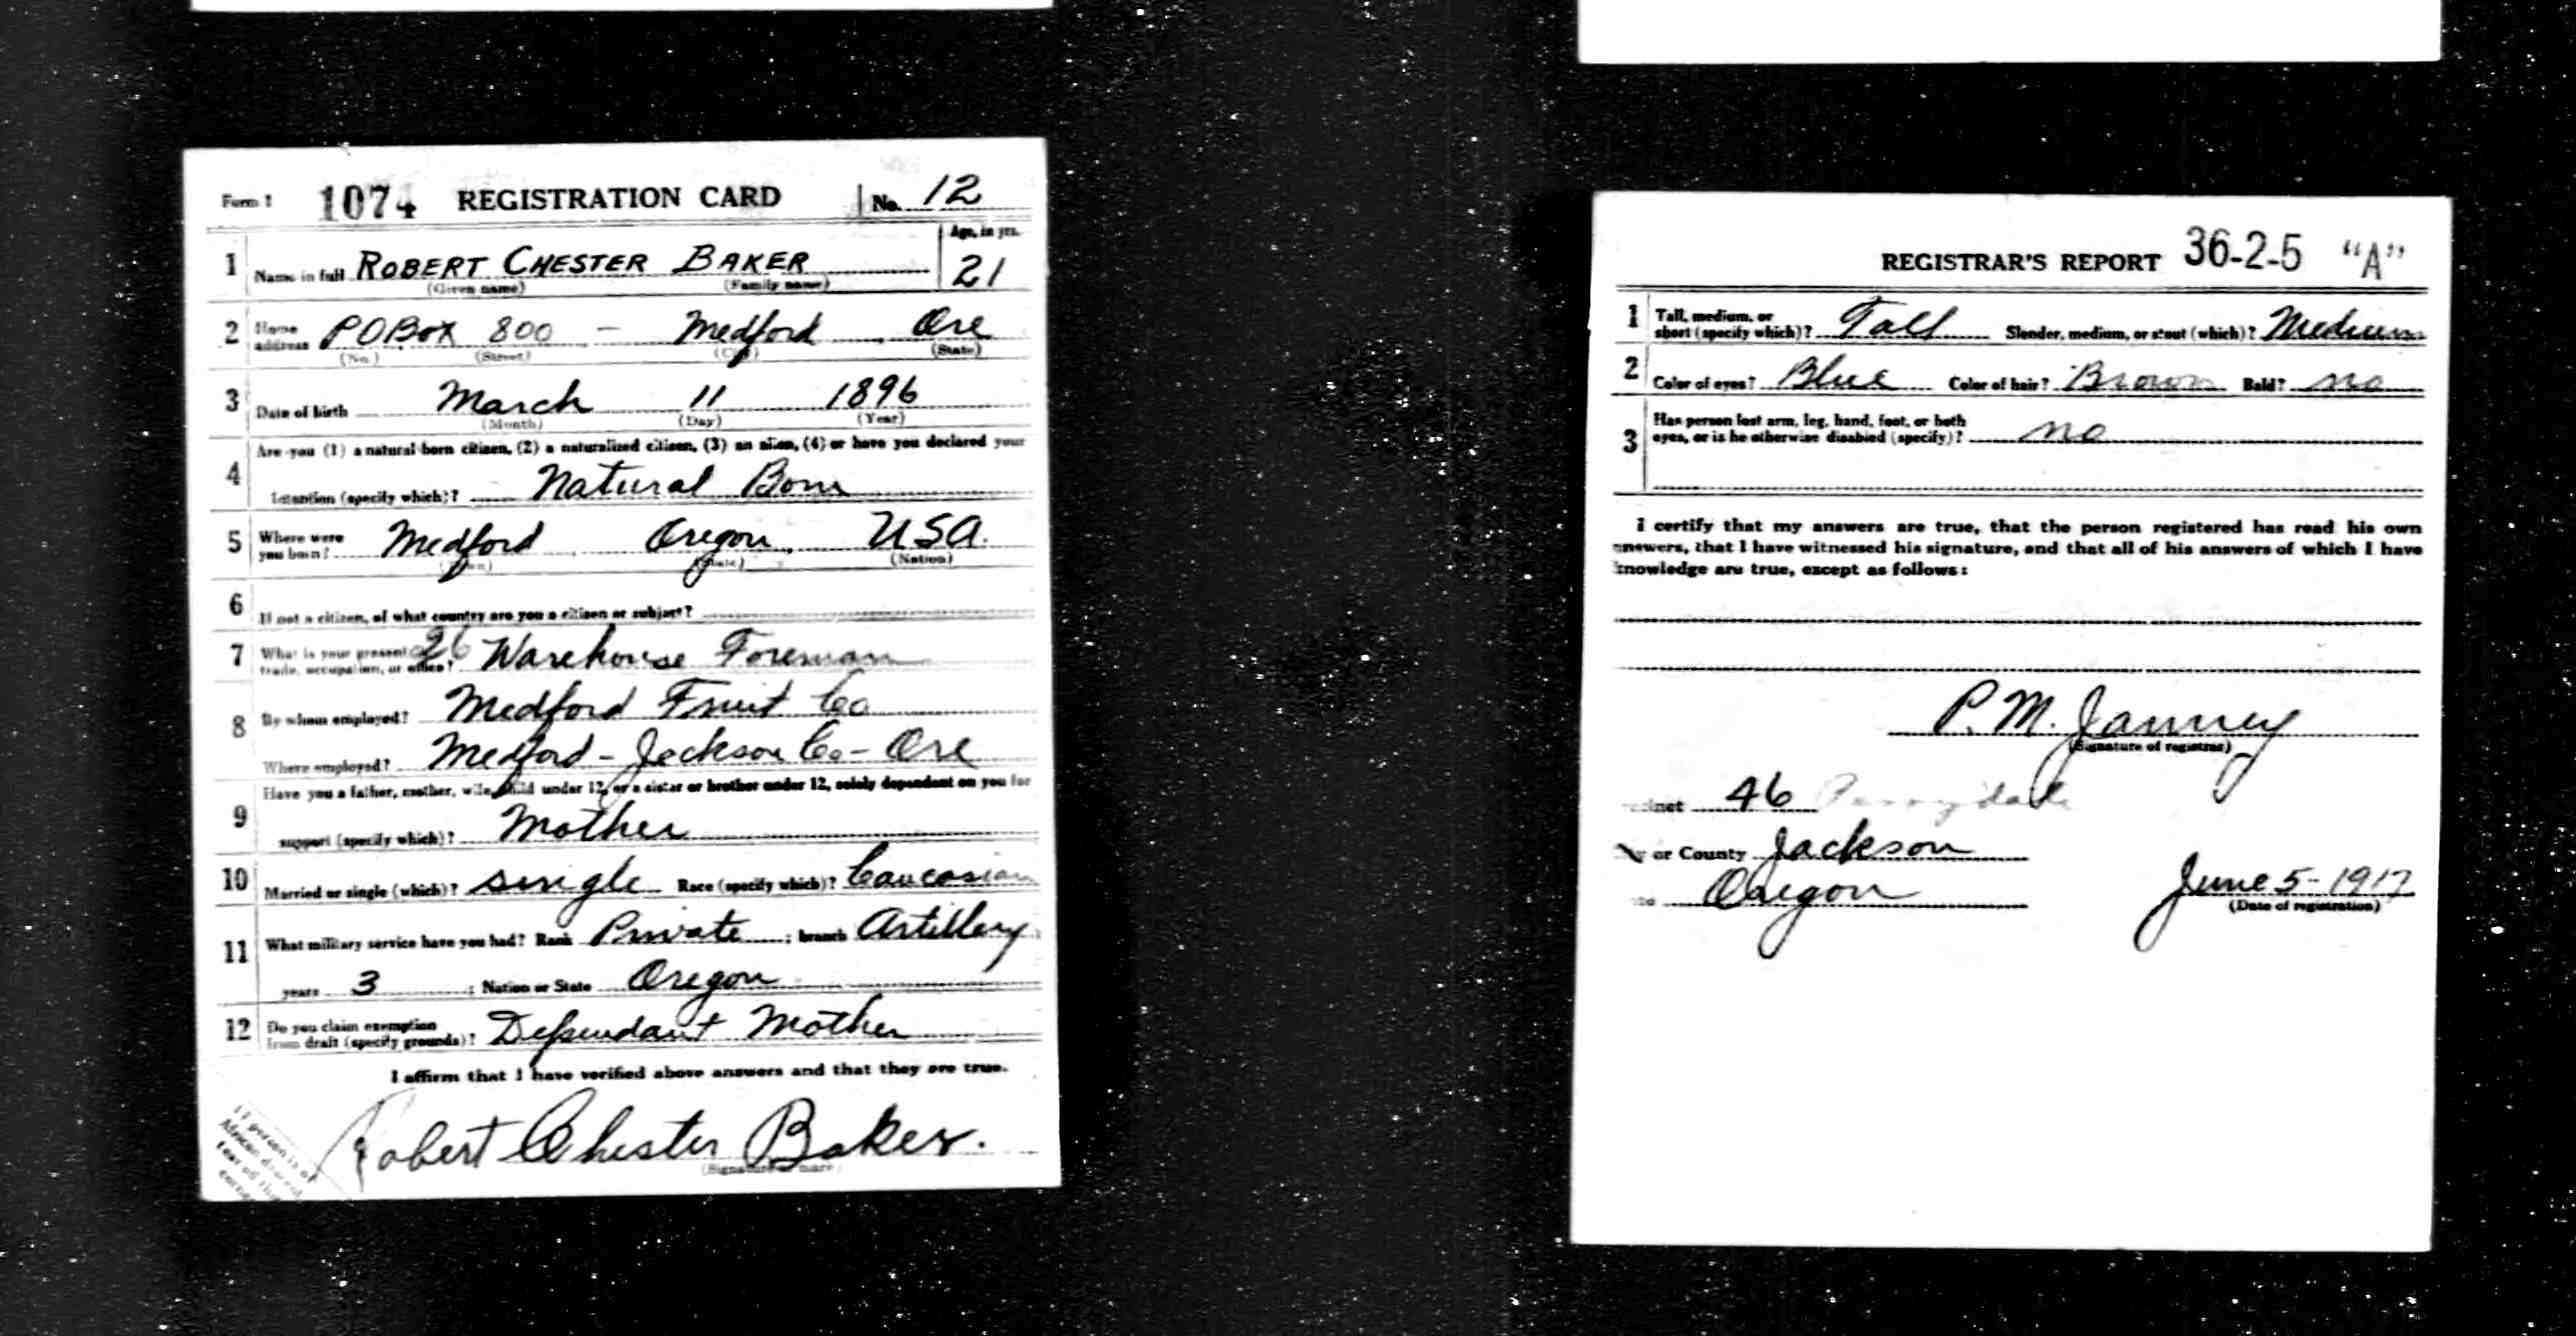 Form 1 1074 REGISTRATION CARD No. 12
Age, in yrs.
1 Name in full ROBERT CHESTER BAKER 21
(Given name) (Family name)
2 Home address P O Box 800 - Medford Ore
(No.) (Street) (City) (State)
3 Date of birth March 11 1896
(Month) (Day) (Year)
4 Are you (1) a natural-born citizen, (2) a naturalized citizen, (3) an alien, (4) or have you declared your
intention (specify which)? Natural Born
5 Where were you born? Medford Oregon USA.
(Town) (State) (Nation)
6 If not a citizen, of what country are you a citizen or subject?
7 What is your present trade, occupation, or office? 26 Warehouse Foreman
8 By whom employed? Medford Fruit Co
Where employed? Medford - Jackson Co - Ore
9 Have you a father, mother, wife, child under 12, or a sister or brother under 12, solely dependent on you for
support (specify which)? Mother
10 Married or single (which)? single Race (specify which)? Caucasian
11 What military service have you had? Rank Private ; branch Artillery
years 3 ; Nation or State Oregon
12 Do you claim exemption from draft (specify grounds)? Dependant Mother
I affirm that I have verified above answers and that they are true.
Robert Chester Baker.
(Signature or mark)
If person is of
African descent,
tear off this
corner
REGISTRAR'S REPORT 36-2-5 "A"
1 Tall, medium, or short (specify which)? Tall Slender, medium, or stout (which)? Medium
2 Color of eyes? Blue Color of hair? Brown Bald? no
3 Has person lost arm, leg, hand, foot, or both
eyes, or is he otherwise disabled (specify)? no
I certify that my answers are true, that the person registered has read his own
answers, that I have witnessed his signature, and that all of his answers of which I have
knowledge are true, except as follows:
P. M. Janney
(Signature of registrar)
Precinct 46
or County Jackson
Oregon June 5 - 1917
(Date of registration)